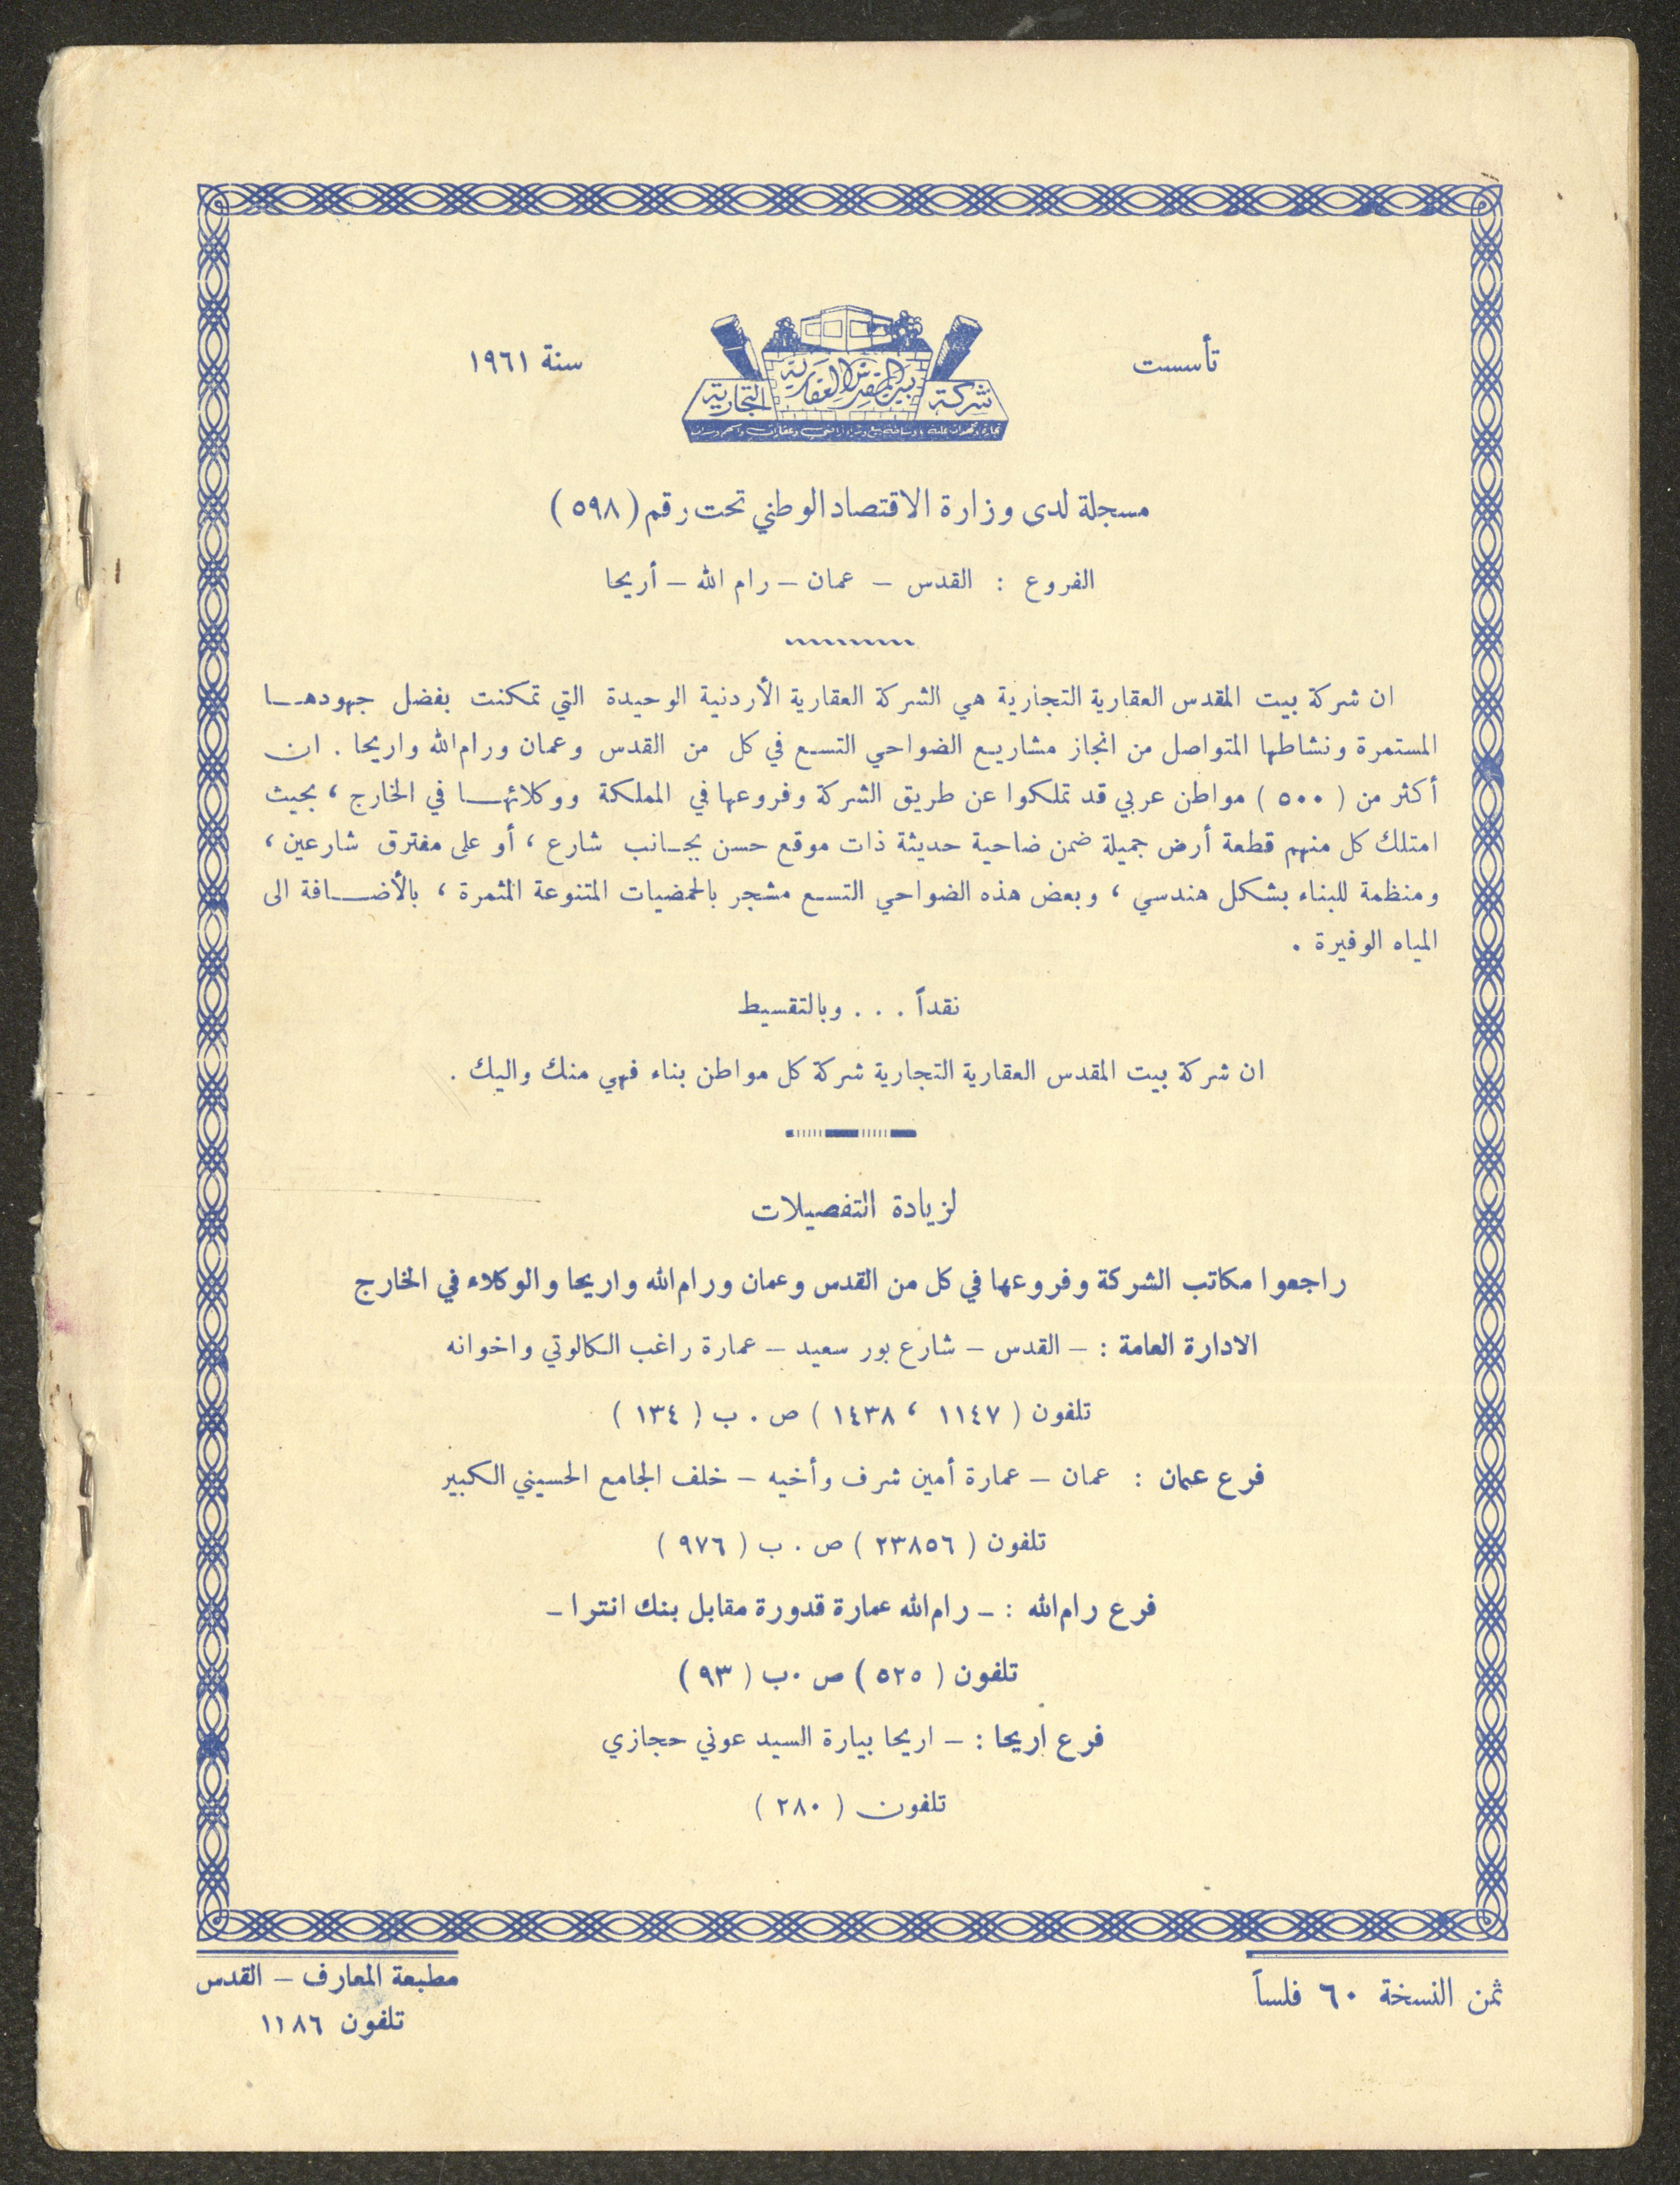 تأسست
سنة ١٩٦١
شركة بيت المقدس العقارية التجارية
مسجلة لدى وزارة الاقتصاد الوطني تحت رقم (٥٩٨)
الفروع : القدس – عمان – رام الله – أريحا
ان شركة بيت المقدس العقارية التجارية هي الشركة العقارية الأردنية الوحيدة التي تمكنت بفضل جهودهـا
المستمرة ونشاطها المتواصل من انجاز مشاريع الضواحي التسع في كل من القدس وعمان ورام الله واريحا . ان
أكثر من ( ٥٠٠ ) مواطن عربي قد تملكوا عن طريق الشركة وفروعها في المملكة ووكلائهـا في الخارج ، بحيث
امتلك كل منهم قطعة أرض جميلة ضمن ضاحية حديثة ذات موقع حسن بجـانب شارع ، أو على مفترق شارعين ،
ومنظمة للبناء بشكل هندسي ، وبعض هذه الضواحي التسع مشجر بالحمضيات المتنوعة المثمرة ، بالأضـافة الى
المياه الوفيرة .
نقداً . . . وبالتقسيط
ان شركة بيت المقدس العقارية التجارية شركة كل مواطن بناء فهي منك واليك .
لزيادة التفصيلات
راجعوا مكاتب الشركة وفروعها في كل من القدس وعمان ورام الله واريحا والوكلاء في الخارج
الادارة العامة : – القدس – شارع بور سعيد – عمارة راغب الكالوتي واخوانه
تلفون ( ١١٤٧ ، ١٤٣٨ ) ص . ب ( ١٣٤ )
فرع عمان : عمان – عمارة أمين شرف وأخيه – خلف الجامع الحسيني الكبير
تلفون ( ٢٣٨٥٦ ) ص . ب ( ٩٧٦ )
فرع رام الله : – رام الله عمارة قدورة مقابل بنك انترا –
تلفون ( ٥٢٥ ) ص . ب ( ٩٣ )
فرع اريحا : – اريحا بيارة السيد عوني حجازي
تلفون ( ٢٨٠ )
ثمن النسخة ٦٠ فلساً
مطبعة المعارف – القدس
تلفون ١١٨٦